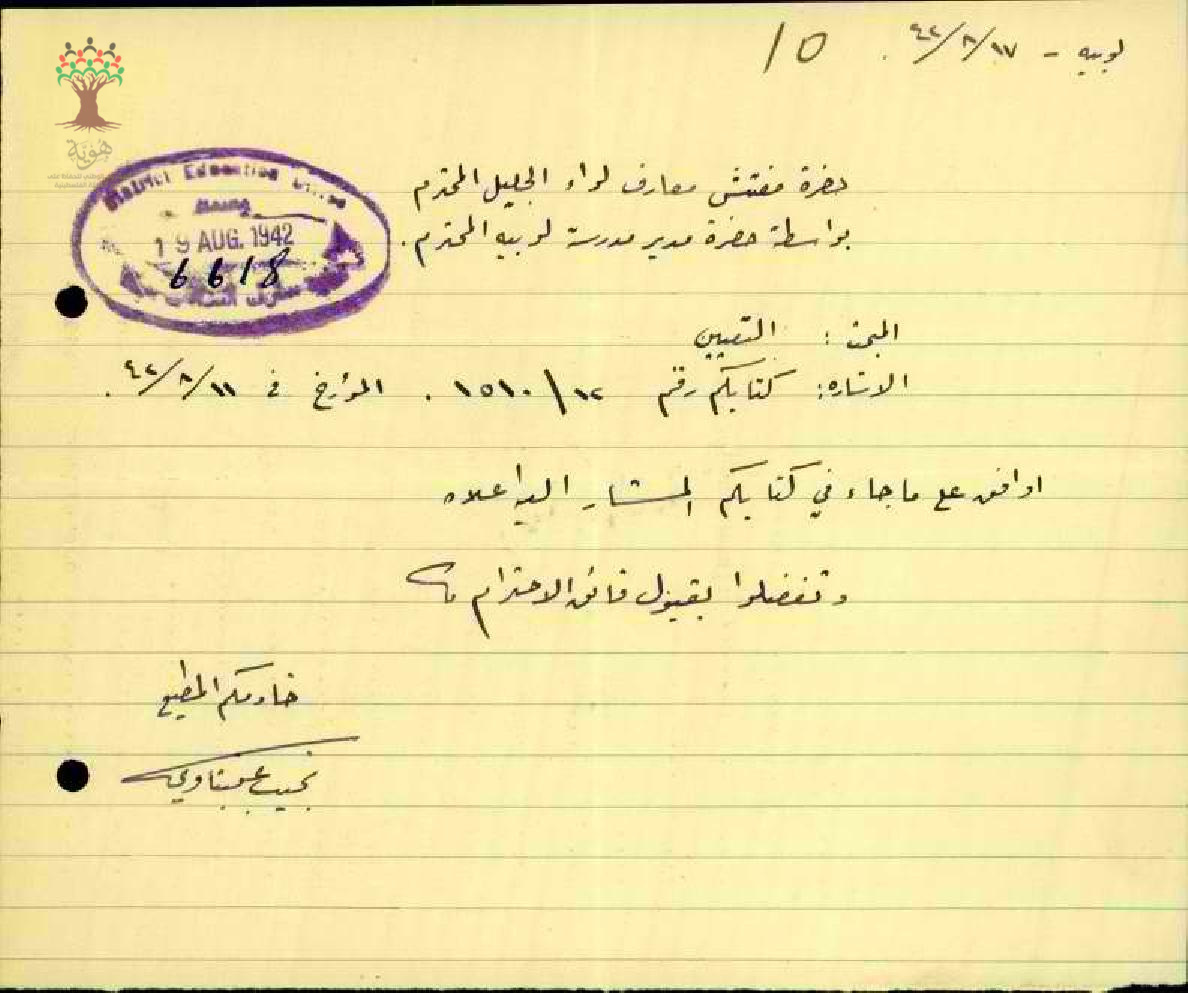 لوبيه - ١٧/٨/٤٢.
15
هُويّة
District Education Office
19 AUG. 1942
6618
حضرة مفتش معارف لواء الجليل المحترم
بواسطة حضرة مدير مدرسة لوبيه المحترم.
المبحث : التعيين
الاشاره: كتابكم رقم ١٢/١٥١٠ . المؤرخ في ١١/٨/٤٢ .
اوافق على ما جاء في كتابكم المشار اليه اعلاه
وتفضلوا بقبول فائق الاحترام
خادمكم المطيع
نجيب